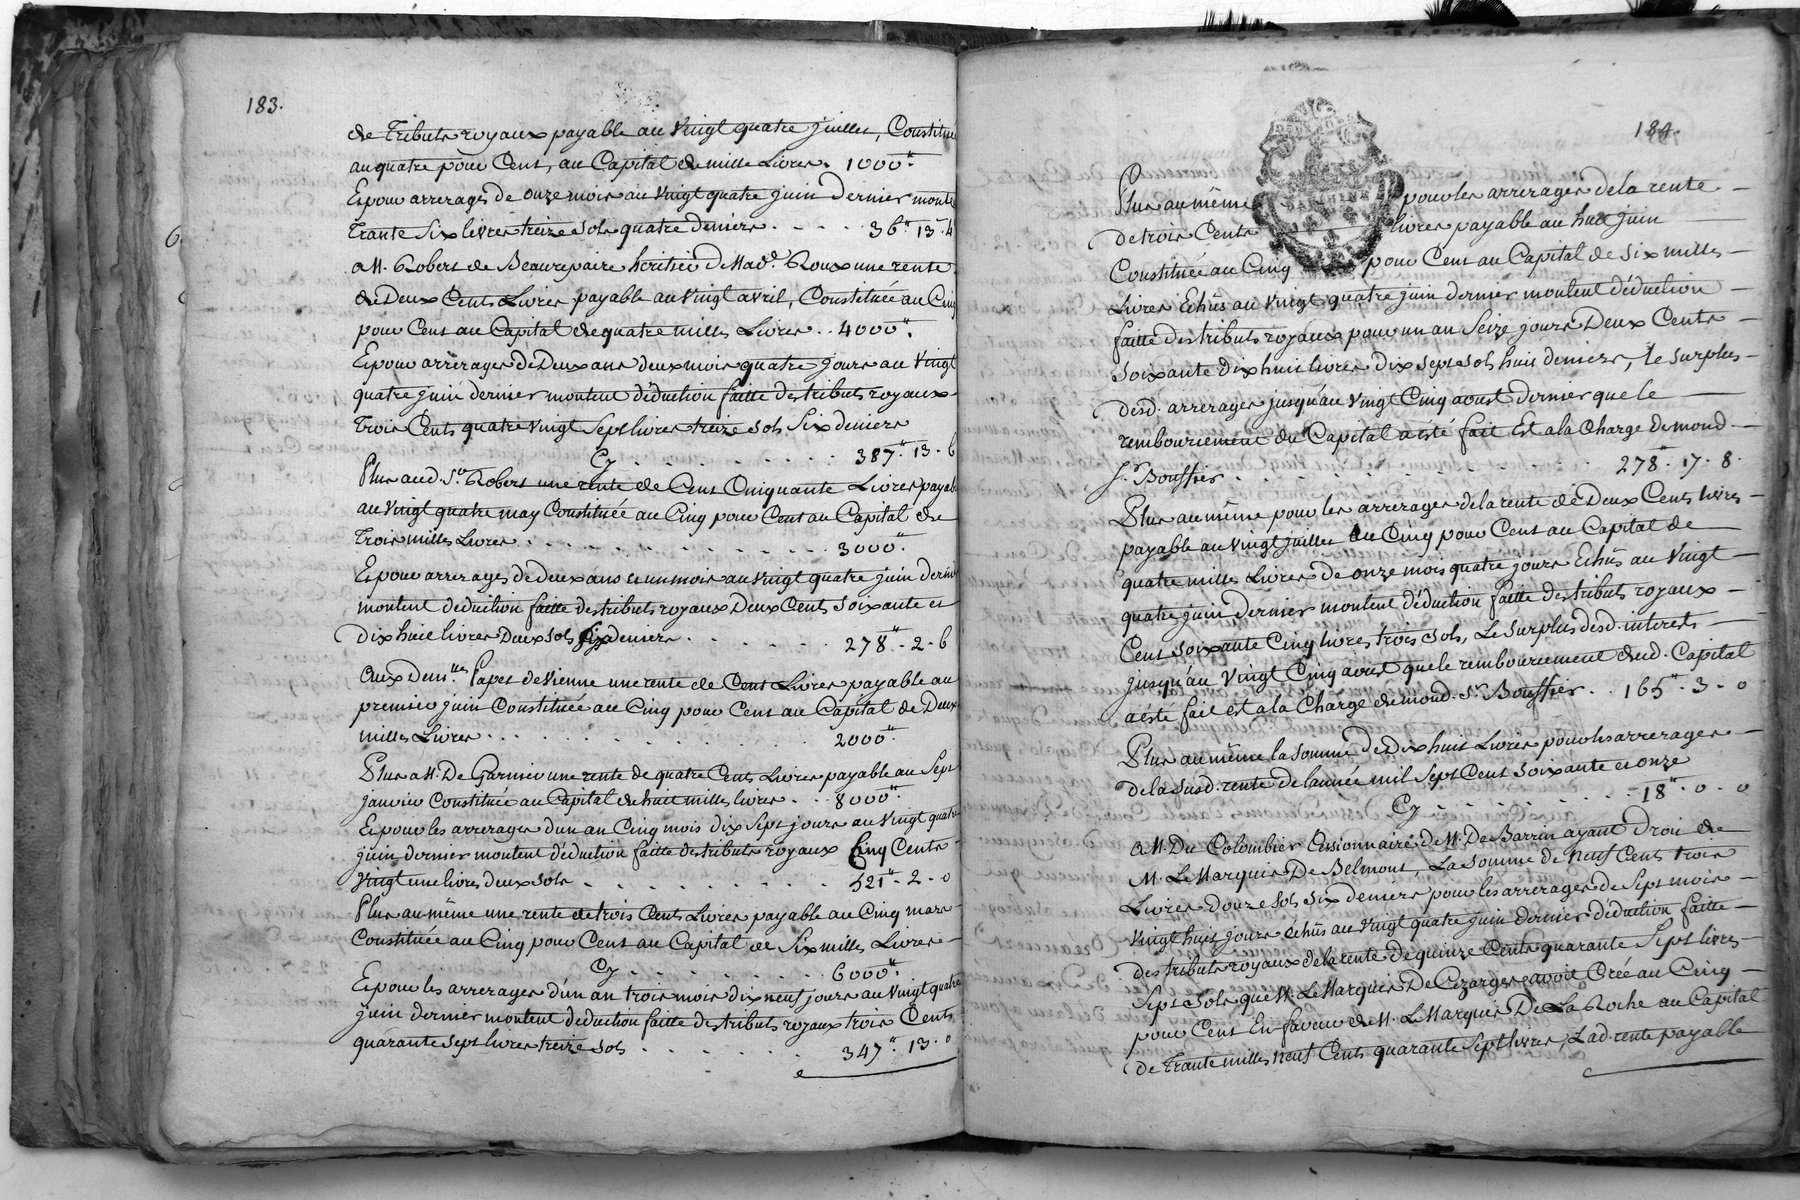 183.
de Tributs royaux payable au Vingt quatre juillet, Constitué
au quatre pour Cent, au Capital de mille Livres. 1000"
Et pour arrerages de onze mois au Vingt quatre juin dernier monte
Trante Six livres treize sols quatre deniers . . . . 36" 13. 4
a M. Robert de Beaurepaire heritier d Mad.e Roux une rente
de Deux Cents Livres payable au Vingt avril, Constituée au Cinq
pour Cent au Capital de quatre milles Livres . . 4000".
Et pour arrérages de Deux ans deux mois quatre jours au Vingt
quatre juin dernier montent déduction faitte des tributs royaux
Trois Cents quatre vingt Sept livres treize sols Six deniers
Cy . . . . . . . . 387". 13. 6
Plus aud. Sr. Robert une rente de Cent Cinquante Livres payab
au Vingt quatre may Constituée au Cinq pour Cent au Capital de
Trois milles Livres . . . . . . . . . . 3000".
Et pour arrerages de deux ans et un mois au Vingt quatre juin dernier
montent déduction faitte des tributs royaux Deux Cents Soixante et
dix huit livres Deux sols Six deniers . . . . . . 278". 2. 6
Aux Dem.lles Papet de Vienne une rente de Cent Livres payable au
premier juin Constituée au Cinq pour Cent au Capital de Deux
milles Livres . . . . . . . . . . 2000".
Plus a M. De Garnier une rente de quatre Cents Livres payable au Sept
janvier Constituée au Capital de huit milles livres . . . 8000".
Et pour les arrerages d'un an Cinq mois dix Sept jours au Vingt quatre
juin dernier montent déduction faitte des tributs royaux Cinq Cents
Vingt une livres deux sols . . . . . . . . 521". 2. 0
Plus au même une rente de trois Cents Livres payable au Cinq mars
Constituée au Cinq pour Cent au Capital de Six milles Livres
Cy . . . . . . . . . 6000".
Et pour les arrerages d'un an trois mois dix neuf jours au Vingt quatre
juin dernier montent déduction faitte des tributs royaux trois Cents
quarante sept livres treize sols . . . . . . . 347". 13. 0
184.
Plus au même pour les arrerages de la rente
de trois Cents livres payable au huit juin
Constituée au Cinq pour Cent au Capital de Six milles
Livres Echûs au Vingt quatre juin dernier montent déduction
faitte des tributs royaux pour un an Seize jours Deux Cents
Soixante dix huit livres dix sept sols huit deniers, le surplus
desd. arrerages jusqu'au Vingt Cinq aoust dernier que le
remboursement du Capital a esté fait Est a la Charge de mond.
Sr. Bouffier . . . . . . . . . . 278". 17. 8.
Plus au même pour les arrerages de la rente de Deux Cents livres
payable au Vingt juillet au Cinq pour Cent au Capital de
quatre milles Livres de onze mois quatre jours Echûs au Vingt
quatre juin Dernier montent déduction faitte des tributs royaux
Cent soixante Cinq livres trois sols, Le Surplus desd. interests
jusqu'au Vingt Cinq aoust que le remboursement dud. Capital
a esté fait est a la Charge de mond. Sr. Bouffier . . 165". 3. 0
Plus au même la somme de Dix huit Livres pour les arrerages
de la susd. rente de l'année mil sept Cent soixante et onze
Cy . . . . . . . . . 18". 0. 0
a M. Du Colombier Cessionnaire de M. De Barrin ayant Droit de
M. Le Marquis De Belmont, La somme de neuf Cents trois
Livres douze sols Six deniers pour les arrerages de Sept mois
Vingt huit jours échûs au Vingt quatre juin dernier déduction faitte
des tributs royaux de la rente de quinze Cents quarante Sept livres
Sept sols que M. Le Marquis De avoit Créé au Cinq
pour Cent En faveur de M. Le Marquis De La Roche au Capital
de Trante milles neuf Cents quarante Sept livres, Lad. rente payable